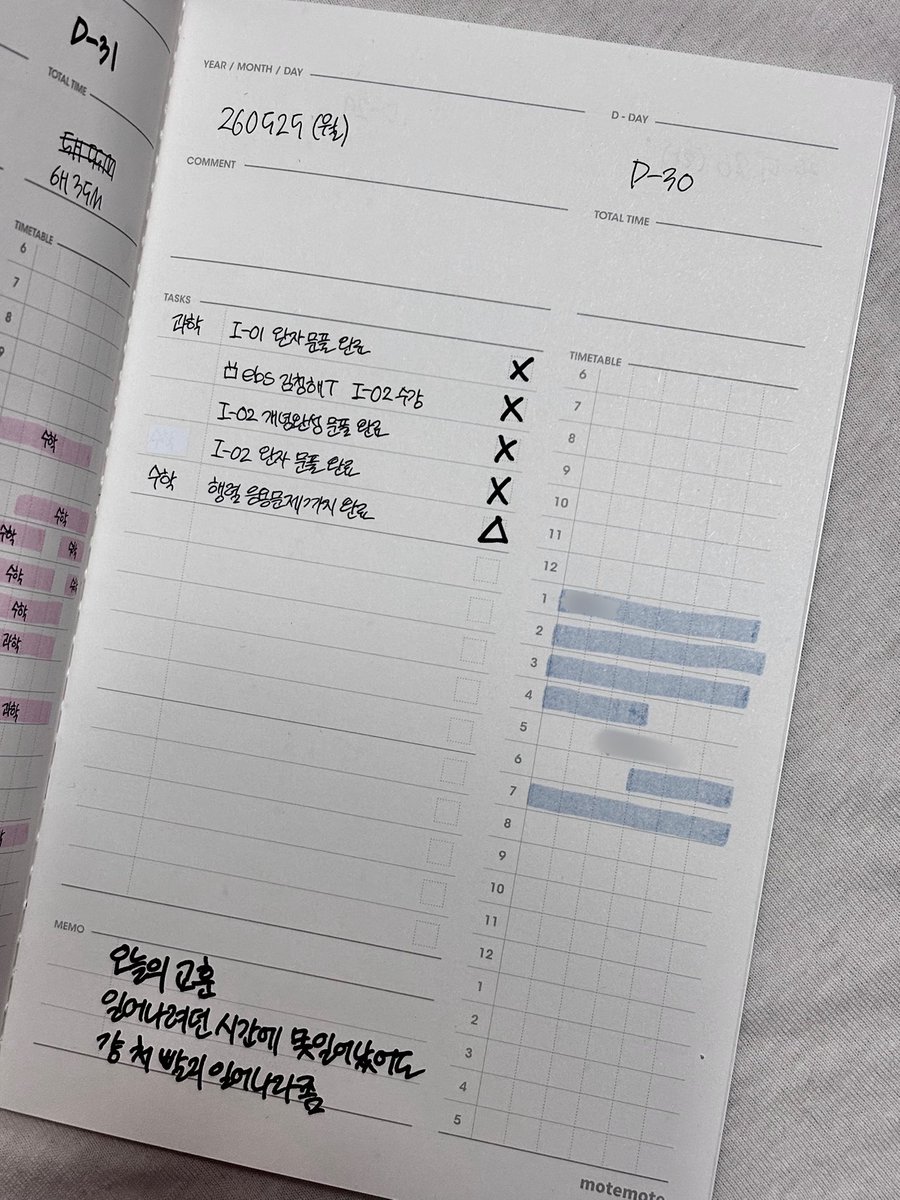 D-31
TOTAL TIME
6H 35M
TIMETABLE
6
7
8
9
수학
수학
수학
수학
수학
수학
수학
과학
과학
YEAR / MONTH / DAY
260525 (월)
D - DAY
D-30
COMMENT
TOTAL TIME
TASKS
과학 I-01 완자 문풀 완료 X
ebs 김청해T I-02 수강 X
I-02 개념완성 문풀 완료 X
I-02 완자 문풀 완료 X
수학 행렬 응용문제까지 완료 △
TIMETABLE
6
7
8
9
10
11
12
1
2
3
4
5
6
7
8
9
10
11
12
1
2
3
4
5
MEMO
오늘의 교훈
일어나려던 시간에 못일어났어도
걍 쳐 빨리 일어나라좀
motemote